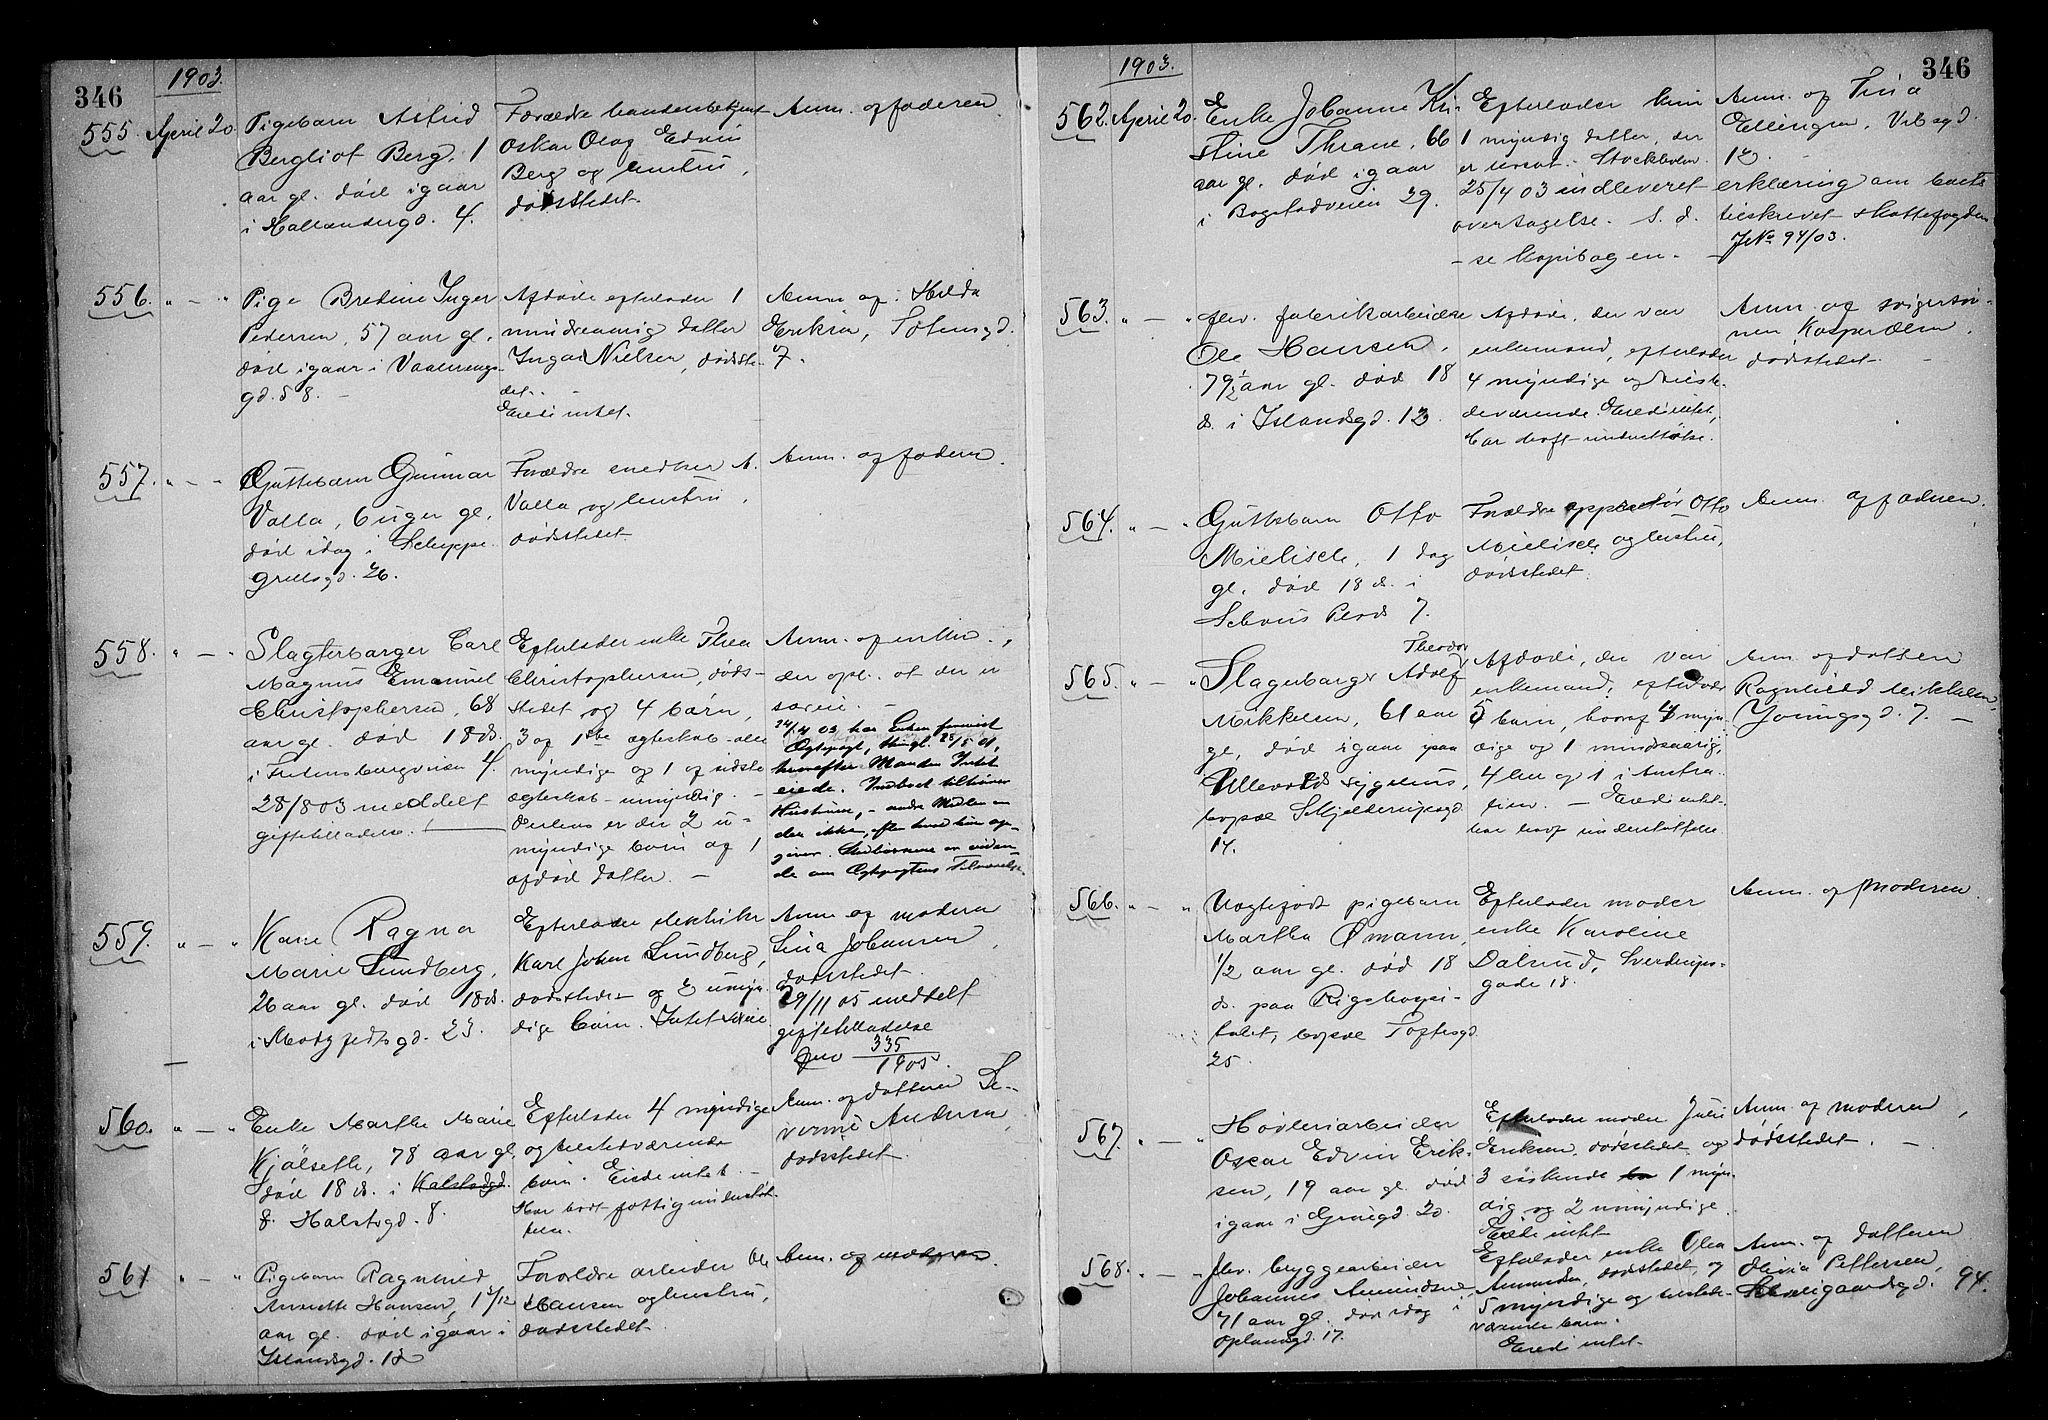 346
1903.
555. April 20.
Pigebarn Astrid
Bergliot Berg, 1
aar gl. død igaar
i Hollændergd. 4.
Forældre handelsbetjent
Oskar Olaf Edvin
Berg og hustru,
dødsstedet.
Anm. af faderen
556. " — "
Pige Bredine Inger
Pedersen, 57 aar gl.
død igaar i Vaalerengs-
gd. 58. —
Afdøde efterlader 1
mindreaarig datter
Inga Nielsen, dødsste-
det. —
Eiede intet.
Anm. af Hilda
Eriksen, Totensgd.
7.
557. " — "
Guttebarn Gunnar
Valla, 6 uger gl.
død idag i Schleppe-
grellsgd. 26.
Forældre snedker A.
Valla og hustru,
dødsstedet.
Anm. af faderen.
558. " — "
Slagterborger Carl
Magnus Emanuel
Christophersen, 68
aar gl. død 18 ds.
i Fredensborgveien 4.
28/8 03 meddelt
giftetilladelse.
Efterlader enke Thea
Christophersen, døds-
stedet og 4 børn,
3 af 1ste ægteskab alle
myndige og 1 af sidste
ægteskab umyndig. —
Desuden er der 2 u-
myndige børn af 1
afdød datter. —
Anm. af enken,
der opl. at der er
særeie. —
24/4 03 har Enken forevist
Ægtepagt, thingl. 25/5 01,
hvorefter Manden Intet
eiede. Indboet tilhører
Hustruen, — andre Midler er
der ikke, efter hvad hun op-
giver. Stedbørnene er viden-
de om Ægtepagtens Tilværelse.
559. " — "
Kone Ragna
Marie Sundberg,
26 aar gl. død 18 ds.
i Motzfeldtsgd. 23.
Efterlader elektriker
Karl Johan Sundberg,
dødsstedet og 2 umyn-
dige børn. Intet særeie
Anm. af moderen
Lina Johansen,
dødsstedet.
29/11 05 meddelt
giftetilladelse
Jno 335/1905.
560. " — "
Enke Marthe Marie
Kjølseth, 78 aar gl.
død 18 ds. i Kalstadgd.
8. Halstsgd. 8.
Efterlader 4 myndige
og tilstedværende
børn. Eiede intet. —
Har havt fattigunderstøt-
telse.
Anm. af datteren Se-
verine Andersen,
dødsstedet.
561 " — "
Pigebarn Ragnhild
Annette Hansen, 1 1/12
aar gl. død igaar i
Islandsgd. 12
Forældre arbeider Ole
Hansen og hustru,
dødsstedet.
Anm. af moderen.
346
1903.
562. April 20.
Enke Johanne Kri-
stine Thrane, 66
aar gl. død igaar
i Bogstadveien 29.
Efterlader kun
1 myndig datter, der
er bosat i Stockholm.
25/4 03 indleveret
overtagelse. S. d.
— se kopibogen. —
Anm. af Tina
Ellingsen, Vibesgd.
12. —
erklæring om boets
tilskrevet skattefogden
JNo 94/03.
563. " — "
fhv. fabrikarbeider
Ole Hansen,
79 1/2 aar gl. død 18
ds. i Islandsgd. 12.
Afdøde, der var
enkemand, efterlader
4 myndige og tilste-
deværende. Eiede intet,
har havt understøttelse.
Anm. af svigersøn-
nen Kasper Olsen,
dødsstedet. —
564. " — "
Guttebarn Otto
Mielisch, 1 dag
gl. død 18 ds. i
Schous Plads 7.
Forældre appretør Otto
Mielisch og hustru,
dødsstedet.
Anm. af faderen.
565. " — "
Theodor
Slagterborger Adolf
Mikkelsen, 61 aar
gl. død igaar paa
Ullevold sygehus,
bopæl Schjelderupsgd.
14.
Afdøde, der var
enkemand, efterlader
5 børn, hvoraf 4 myn-
dige og 1 mindreaarig,
4 her og 1 i Austra-
lien. — Eiede intet.
har havt understøttelse
Anm. af datteren
Ragnhild Mikkelsen,
Youngsgd. 7. —
566. " — "
Uægtefødt pigebarn
Martha Ømann,
1/2 aar gl. død 18
ds. paa Rigshospi-
talet, bopæl Toftesgd.
25.
Efterlader moder
enke Karoline
Dalsrud, Sverdrups-
gade 18.
Anm. af moderen.
567. " — "
Høvleriarbeider
Oscar Edvin Erik-
sen, 19 aar gl. død
igaar i Grünergd. 20.
Efterlader moder Julie
Eriksen, dødsstedet, og
3 søskende 1 myn-
dig og 2 umyndige.
Eiede intet
Anm. af moderen,
dødsstedet. —
568. " — "
fhv. bryggearbeider
Johannes Amundsen,
71 aar gl. død idag i
Oplandsgd. 17.
Efterlader enke Olea
Amundsen, dødsstedet, og
5 myndige og tilstede-
værende børn.
Eiede intet.
Anm. af datteren
Olivia Pettersen,
Schweigaardsgd. 94.